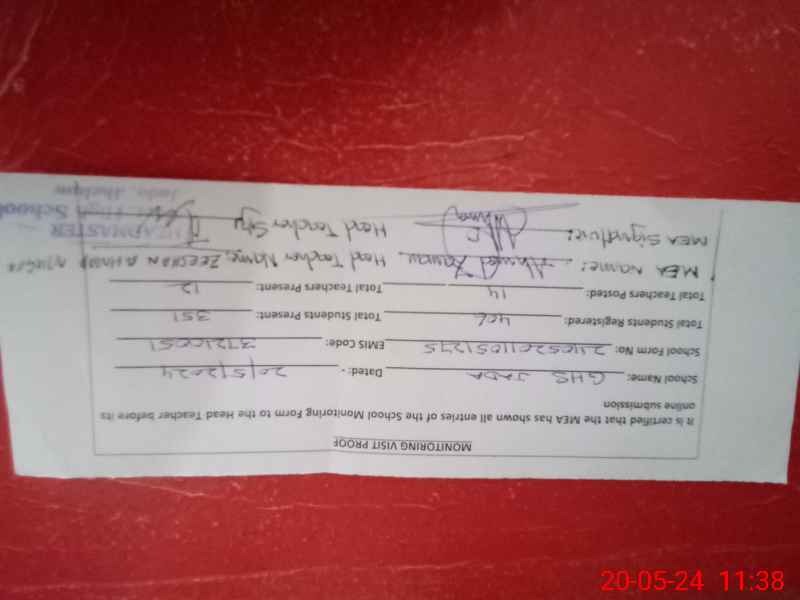 MONITORING VISIT PROOF
It is certified that the MEA has shown all entries of the School Monitoring Form to the Head Teacher before its
online submission
School Name: GHS JADA Dated: - 20/5/2024
School Form No: EMIS Code: 37210051
Total Students Registered: 406 Total Students Present: 351
Total Teachers Posted: 14 Total Teachers Present: 12
MEA Name: Ahmed Head Teacher Name: ZEESHAN AHMAD
MEA Signature: Head Teacher Sig
HEADMASTER
High School
Jada, Jhelum
20-05-24 11:38